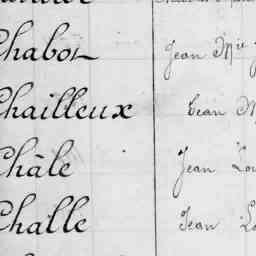 Chabot Jean M^ie
Chailleux Jean M
Châle Jean Lou
Challe Jean Lo